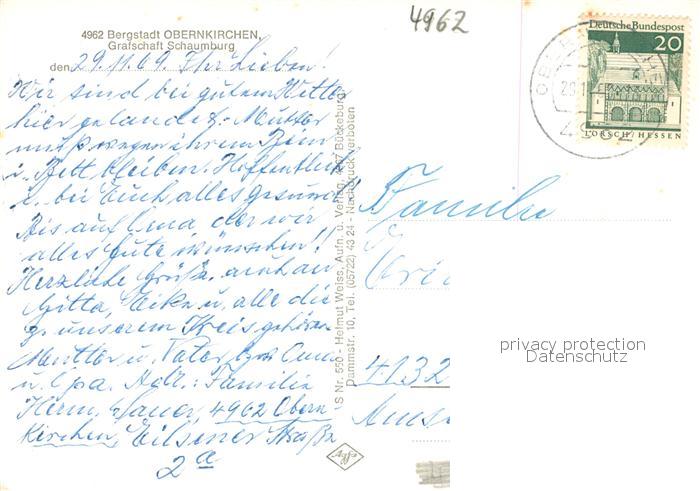 4962
4962 Bergstadt OBERNKIRCHEN,
Grafschaft Schaumburg
den 29.11.69. Ihr Lieben!
Wir sind bei gutem Wetter
hier gelandet. Mutter
muß wegen ihrem Bein
i. Bett bleiben. Hoffentlich
i. bei Euch alles gesund!
Bis auf Lina der wir
alles Gute wünschen!
Herzliche Grüße, auch an
Gitta, Eike u. alle die
z. unserem Kreis gehören
Mutter u. Vater, bzw Oma
u. Opa. Adr.: Familie
Herm. Sauer, 4962 Obern-
Kirchen, Eilsener Straße
2a
S Nr. 550 - Helmut Weiss, Aufn. u. Verlag, 4967 Bückeburg
Dammstr. 10, Tel. (05722) 43 24 - Nachdruck verboten
Agfa
Deutsche Bundespost
20
LORSCH/HESSEN
4962
Familie
4132
privacy protection
Datenschutz